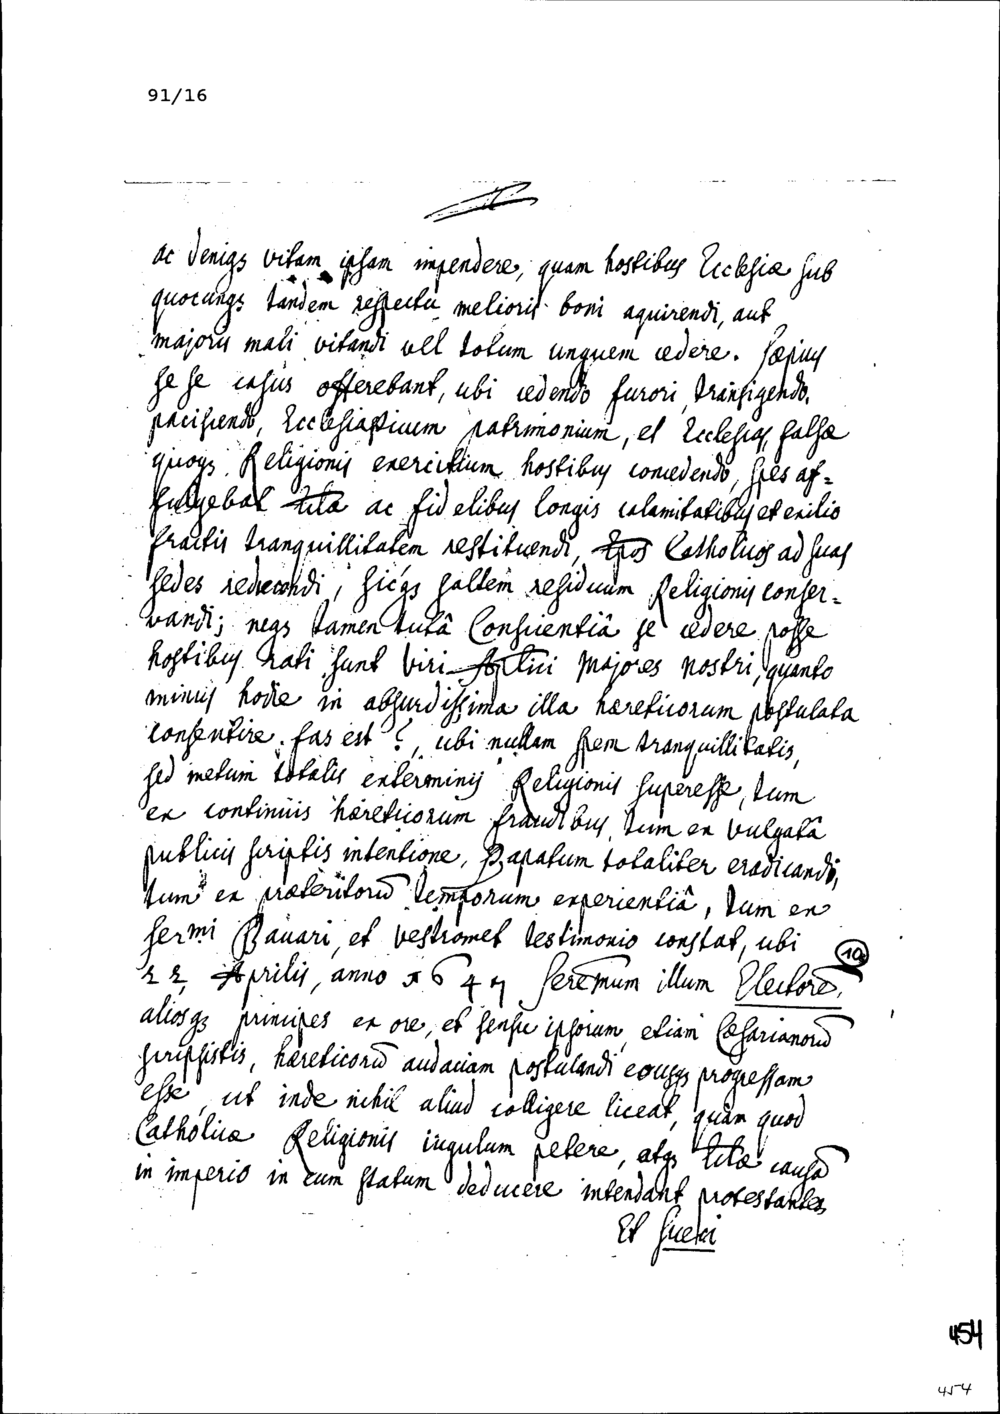 91/16
ac deniqs vitam ipsam impendere, quam hostibus Ecclesiæ sub
quocunqs tandem respectu melioris boni aquirendi, aut
majoris mali vitandi vel totum unquem cedere. Sæpius
se se casus offerebant, ubi cedendo furori, transigendo,
paciscendo, Ecclesiasticum patrimonium, et Ecclesias, falsæ
quoqs Religionis exercitium hostibus concedendo, spes af=
fulgebat ac fidelibus longis calamitatibus et exilio
fractis tranquillitatem restituendi, Epos Catholicos ad suas
sedes reducendi, sicqs saltem residuum Religionis conser=
vandi; neqs tamen tutâ Conscientiâ se cedere posse
hostibus rati sunt viri Aplici Majores nostri, quanto
minus hodie in absurdissima illa hæreticorum postulata
consentire fas est?, ubi nullam spem tranquillitatis,
sed metum totalis exterminij Religionis superesse, tum
ex continuis hæreticorum fraudibus, tum ex vulgatâ
publicis scriptis intentione, Papatum totaliter eradicandi,
tum ex præteritorū temporum experientiâ, tum ex
sermi Bavari, et vestromet testimonio constat, ubi
22 Aprilis, anno 1647 Seremum illum Electorē, 10
aliosqs principes ex ore, et sensu ipsorum etiam Cæsarianorū
scripsistis, hæreticorū audaciam postulandi eousqs progressam
esse, ut inde nihil aliud colligere liceat, quàm quod
Catholicæ Religionis iugulum petere, atqs causā
in imperio in eum statum deducere intendant protestantes
Et Sueci
454
454